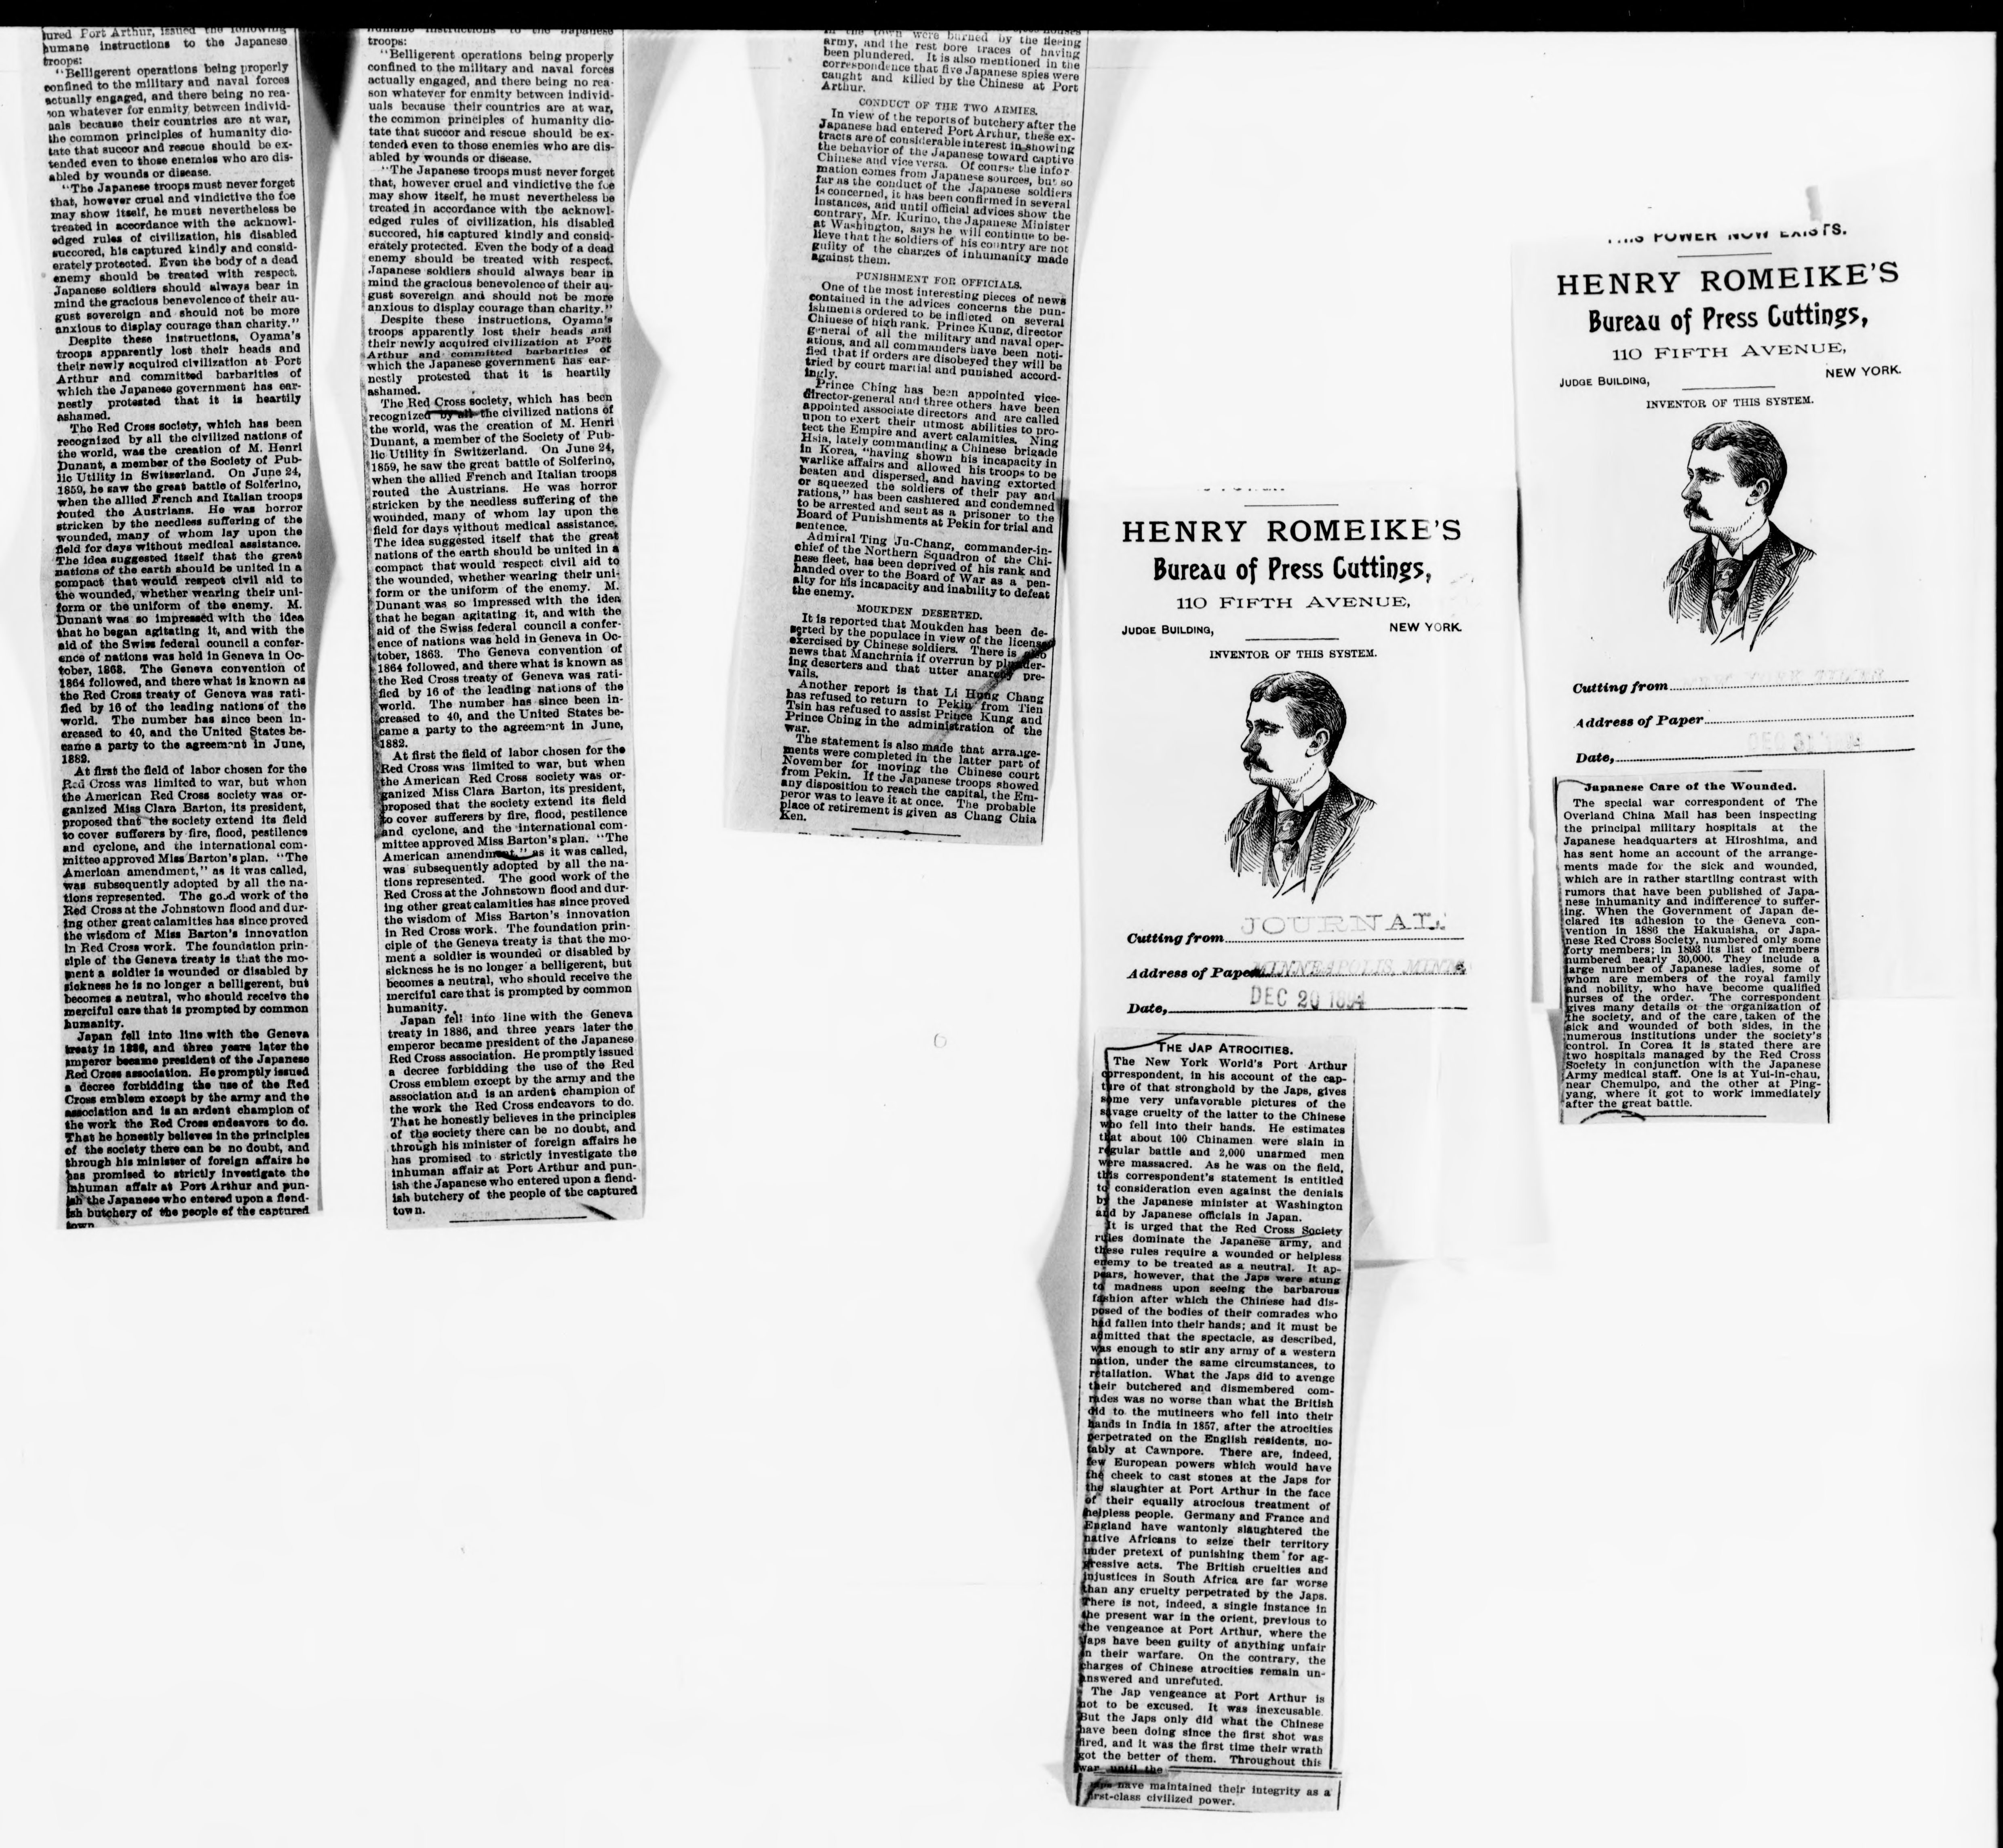 tured Port Arthur, issued the following
humane instructions to the Japanese
troops:
"Belligerent operations being properly
confined to the military and naval forces
actually engaged, and there being no rea-
son whatever for enmity between individ-
uals because their countries are at war,
the common principles of humanity dic-
tate that succor and rescue should be ex-
tended even to those enemies who are dis-
abled by wounds or disease.
"The Japanese troops must never forget
that, however cruel and vindictive the foe
may show itself, he must nevertheless be
treated in accordance with the acknowl-
edged rules of civilization, his disabled
succored, his captured kindly and consid-
erately protected. Even the body of a dead
enemy should be treated with respect.
Japanese soldiers should always bear in
mind the gracious benevolence of their au-
gust sovereign and should not be more
anxious to display courage than charity."
Despite these instructions, Oyama's
troops apparently lost their heads and
their newly acquired civilization at Port
Arthur and committed barbarities of
which the Japanese government has ear-
nestly protested that it is heartily
ashamed.
The Red Cross society, which has been
recognized by all the civilized nations of
the world, was the creation of M. Henri
Dunant, a member of the Society of Pub-
lic Utility in Switzerland. On June 24,
1859, he saw the great battle of Solferino,
when the allied French and Italian troops
routed the Austrians. He was horror
stricken by the needless suffering of the
wounded, many of whom lay upon the
field for days without medical assistance.
The idea suggested itself that the great
nations of the earth should be united in a
compact that would respect civil aid to
the wounded, whether wearing their uni-
form or the uniform of the enemy. M.
Dunant was so impressed with the idea
that he began agitating it, and with the
aid of the Swiss federal council a confer-
ence of nations was held in Geneva in Oc-
tober, 1863. The Geneva convention of
1864 followed, and there what is known as
the Red Cross treaty of Geneva was rati-
fied by 16 of the leading nations of the
world. The number has since been in-
creased to 40, and the United States be-
came a party to the agreement in June,
1882.
At first the field of labor chosen for the
Red Cross was limited to war, but when
the American Red Cross society was or-
ganized Miss Clara Barton, its president,
proposed that the society extend its field
to cover sufferers by fire, flood, pestilence
and cyclone, and the international com-
mittee approved Miss Barton's plan. "The
American amendment," as it was called,
was subsequently adopted by all the na-
tions represented. The good work of the
Red Cross at the Johnstown flood and dur-
ing other great calamities has since proved
the wisdom of Miss Barton's innovation
in Red Cross work. The foundation prin-
ciple of the Geneva treaty is that the mo-
ment a soldier is wounded or disabled by
sickness he is no longer a belligerent, but
becomes a neutral, who should receive the
merciful care that is prompted by common
humanity.
Japan fell into line with the Geneva
treaty in 1886, and three years later the
emperor became president of the Japanese
Red Cross association. He promptly issued
a decree forbidding the use of the Red
Cross emblem except by the army and the
association and is an ardent champion of
the work the Red Cross endeavors to do.
That he honestly believes in the principles
of the society there can be no doubt, and
through his minister of foreign affairs he
has promised to strictly investigate the
inhuman affair at Port Arthur and pun-
ish the Japanese who entered upon a fiend-
ish butchery of the people of the captured
town.
humane instructions to the Japanese
troops:
"Belligerent operations being properly
confined to the military and naval forces
actually engaged, and there being no rea-
son whatever for enmity between individ-
uals because their countries are at war,
the common principles of humanity dic-
tate that succor and rescue should be ex-
tended even to those enemies who are dis-
abled by wounds or disease.
"The Japanese troops must never forget
that, however cruel and vindictive the foe
may show itself, he must nevertheless be
treated in accordance with the acknowl-
edged rules of civilization, his disabled
succored, his captured kindly and consid-
erately protected. Even the body of a dead
enemy should be treated with respect.
Japanese soldiers should always bear in
mind the gracious benevolence of their au-
gust sovereign and should not be more
anxious to display courage than charity."
Despite these instructions, Oyama's
troops apparently lost their heads and
their newly acquired civilization at Port
Arthur and committed barbarities of
which the Japanese government has ear-
nestly protested that it is heartily
ashamed.
The Red Cross society, which has been
recognized by all the civilized nations of
the world, was the creation of M. Henri
Dunant, a member of the Society of Pub-
lic Utility in Switzerland. On June 24,
1859, he saw the great battle of Solferino,
when the allied French and Italian troops
routed the Austrians. He was horror
stricken by the needless suffering of the
wounded, many of whom lay upon the
field for days without medical assistance.
The idea suggested itself that the great
nations of the earth should be united in a
compact that would respect civil aid to
the wounded, whether wearing their uni-
form or the uniform of the enemy. M.
Dunant was so impressed with the idea
that he began agitating it, and with the
aid of the Swiss federal council a confer-
ence of nations was held in Geneva in Oc-
tober, 1863. The Geneva convention of
1864 followed, and there what is known as
the Red Cross treaty of Geneva was rati-
fied by 16 of the leading nations of the
world. The number has since been in-
creased to 40, and the United States be-
came a party to the agreement in June,
1882.
At first the field of labor chosen for the
Red Cross was limited to war, but when
the American Red Cross society was or-
ganized Miss Clara Barton, its president,
proposed that the society extend its field
to cover sufferers by fire, flood, pestilence
and cyclone, and the international com-
mittee approved Miss Barton's plan. "The
American amendment," as it was called,
was subsequently adopted by all the na-
tions represented. The good work of the
Red Cross at the Johnstown flood and dur-
ing other great calamities has since proved
the wisdom of Miss Barton's innovation
in Red Cross work. The foundation prin-
ciple of the Geneva treaty is that the mo-
ment a soldier is wounded or disabled by
sickness he is no longer a belligerent, but
becomes a neutral, who should receive the
merciful care that is prompted by common
humanity.
Japan fell into line with the Geneva
treaty in 1886, and three years later the
emperor became president of the Japanese
Red Cross association. He promptly issued
a decree forbidding the use of the Red
Cross emblem except by the army and the
association and is an ardent champion of
the work the Red Cross endeavors to do.
That he honestly believes in the principles
of the society there can be no doubt, and
through his minister of foreign affairs he
has promised to strictly investigate the
inhuman affair at Port Arthur and pun-
ish the Japanese who entered upon a fiend-
ish butchery of the people of the captured
town.
in the town were burned by the fleeing
army, and the rest bore traces of having
been plundered. It is also mentioned in the
correspondence that five Japanese spies were
caught and killed by the Chinese at Port
Arthur.
CONDUCT OF THE TWO ARMIES.
In view of the reports of butchery after the
Japanese had entered Port Arthur, these ex-
tracts are of considerable interest in showing
the behavior of the Japanese toward captive
Chinese and vice versa. Of course the infor
mation comes from Japanese sources, but so
far as the conduct of the Japanese soldiers
is concerned, it has been confirmed in several
instances, and until official advices show the
contrary, Mr. Kurino, the Japanese Minister
at Washington, says he will continue to be-
lieve that the soldiers of his country are not
guilty of the charges of inhumanity made
against them.
PUNISHMENT FOR OFFICIALS.
One of the most interesting pieces of news
contained in the advices concerns the pun-
ishments ordered to be inflicted on several
Chinese of high rank. Prince Kung, director
general of all the military and naval oper-
ations, and all commanders have been noti-
fied that if orders are disobeyed they will be
tried by court martial and punished accord-
ingly.
Prince Ching has been appointed vice-
director-general and three others have been
appointed associate directors and are called
upon to exert their utmost abilities to pro-
tect the Empire and avert calamities. Ning
Hsia, lately commanding a Chinese brigade
in Korea, "having shown his incapacity in
warlike affairs and allowed his troops to be
beaten and dispersed, and having extorted
or squeezed the soldiers of their pay and
rations," has been cashiered and condemned
to be arrested and sent as a prisoner to the
Board of Punishments at Pekin for trial and
sentence.
Admiral Ting Ju-Chang, commander-in-
chief of the Northern Squadron of the Chi-
nese fleet, has been deprived of his rank and
handed over to the Board of War as a pen-
alty for his incapacity and inability to defeat
the enemy.
MOUKDEN DESERTED.
It is reported that Moukden has been de-
serted by the populace in view of the license
exercised by Chinese soldiers. There is also
news that Manchrnia if overrun by plunder-
ing deserters and that utter anarchy pre-
vails.
Another report is that Li Hung Chang
has refused to return to Pekin from Tien
Tsin has refused to assist Prince Kung and
Prince Ching in the administration of the
war.
The statement is also made that arrange-
ments were completed in the latter part of
November for moving the Chinese court
from Pekin. If the Japanese troops showed
any disposition to reach the capital, the Em-
peror was to leave it at once. The probable
place of retirement is given as Chang Chia
Ken.
HENRY ROMEIKE'S
Bureau of Press Cuttings,
110 FIFTH AVENUE,
JUDGE BUILDING, NEW YORK.
INVENTOR OF THIS SYSTEM.
Cutting from JOURNAL
Address of Paper MINNEAPOLIS, MINN.
Date, DEC 20 1894
THE JAP ATROCITIES.
The New York World's Port Arthur
correspondent, in his account of the cap-
ture of that stronghold by the Japs, gives
some very unfavorable pictures of the
savage cruelty of the latter to the Chinese
who fell into their hands. He estimates
that about 100 Chinamen were slain in
regular battle and 2,000 unarmed men
were massacred. As he was on the field,
this correspondent's statement is entitled
to consideration even against the denials
by the Japanese minister at Washington
and by Japanese officials in Japan.
It is urged that the Red Cross Society
rules dominate the Japanese army, and
these rules require a wounded or helpless
enemy to be treated as a neutral. It ap-
pears, however, that the Japs were stung
to madness upon seeing the barbarous
fashion after which the Chinese had dis-
posed of the bodies of their comrades who
had fallen into their hands; and it must be
admitted that the spectacle, as described,
was enough to stir any army of a western
nation, under the same circumstances, to
retaliation. What the Japs did to avenge
their butchered and dismembered com-
rades was no worse than what the British
did to the mutineers who fell into their
hands in India in 1857, after the atrocities
perpetrated on the English residents, no-
tably at Cawnpore. There are, indeed,
few European powers which would have
the cheek to cast stones at the Japs for
the slaughter at Port Arthur in the face
of their equally atrocious treatment of
helpless people. Germany and France and
England have wantonly slaughtered the
native Africans to seize their territory
under pretext of punishing them for ag-
gressive acts. The British cruelties and
injustices in South Africa are far worse
than any cruelty perpetrated by the Japs.
There is not, indeed, a single instance in
the present war in the orient, previous to
the vengeance at Port Arthur, where the
Japs have been guilty of anything unfair
in their warfare. On the contrary, the
charges of Chinese atrocities remain un-
answered and unrefuted.
The Jap vengeance at Port Arthur is
not to be excused. It was inexcusable.
But the Japs only did what the Chinese
have been doing since the first shot was
fired, and it was the first time their wrath
got the better of them. Throughout this
war until the
Japs have maintained their integrity as a
first-class civilized power.
THIS POWER NOW EXISTS.
HENRY ROMEIKE'S
Bureau of Press Cuttings,
110 FIFTH AVENUE,
JUDGE BUILDING, NEW YORK.
INVENTOR OF THIS SYSTEM.
Cutting from NEW YORK TIMES
Address of Paper
Date,
Japanese Care of the Wounded.
The special war correspondent of The
Overland China Mail has been inspecting
the principal military hospitals at the
Japanese headquarters at Hiroshima, and
has sent home an account of the arrange-
ments made for the sick and wounded,
which are in rather startling contrast with
rumors that have been published of Japa-
nese inhumanity and indifference to suffer-
ing. When the Government of Japan de-
clared its adhesion to the Geneva con-
vention in 1886 the Hakuaisha, or Japa-
nese Red Cross Society, numbered only some
forty members; in 1893 its list of members
numbered nearly 30,000. They include a
large number of Japanese ladies, some of
whom are members of the royal family
and nobility, who have become qualified
nurses of the order. The correspondent
gives many details of the organization of
the society, and of the care taken of the
sick and wounded of both sides, in the
numerous institutions under the society's
control. In Corea it is stated there are
two hospitals managed by the Red Cross
Society in conjunction with the Japanese
Army medical staff. One is at Yui-in-chau,
near Chemulpo, and the other at Ping-
yang, where it got to work immediately
after the great battle.